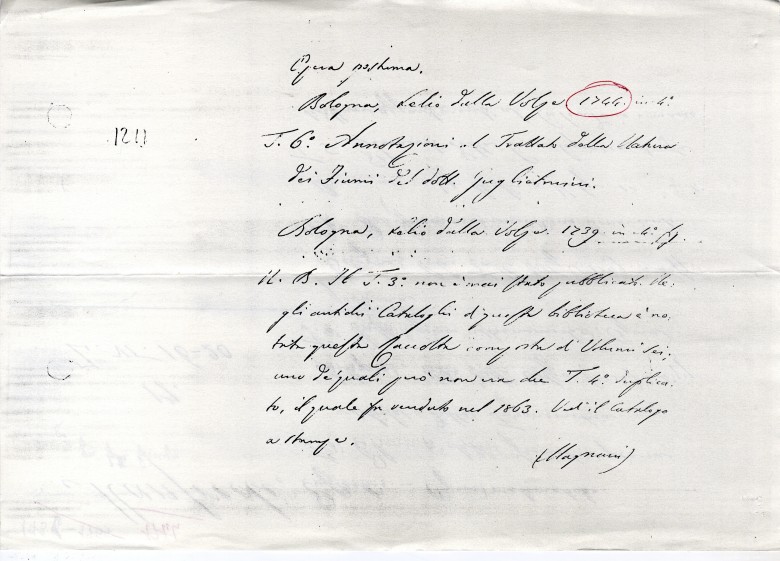 Opera postuma.
Bologna, Lelio dalla Volpe 1744. in 4°
1211
T. 6° Annotazioni al Trattato della Natura
dei Fiumi del dott. Guglielmini.
Bologna, Lelio dalla Volpe 1739. in 4° fig.
N. B. Il T. 3° non è mai stato pubblicato. Ne-
gli antichi Cataloghi di questa biblioteca è no-
tata questa Raccolta composta di Volumi sei,
uno de' quali però non era che T. 4° duplica-
to, il quale fu venduto nel 1863. Vedi il Catalogo
a stampa.
(Magnani)